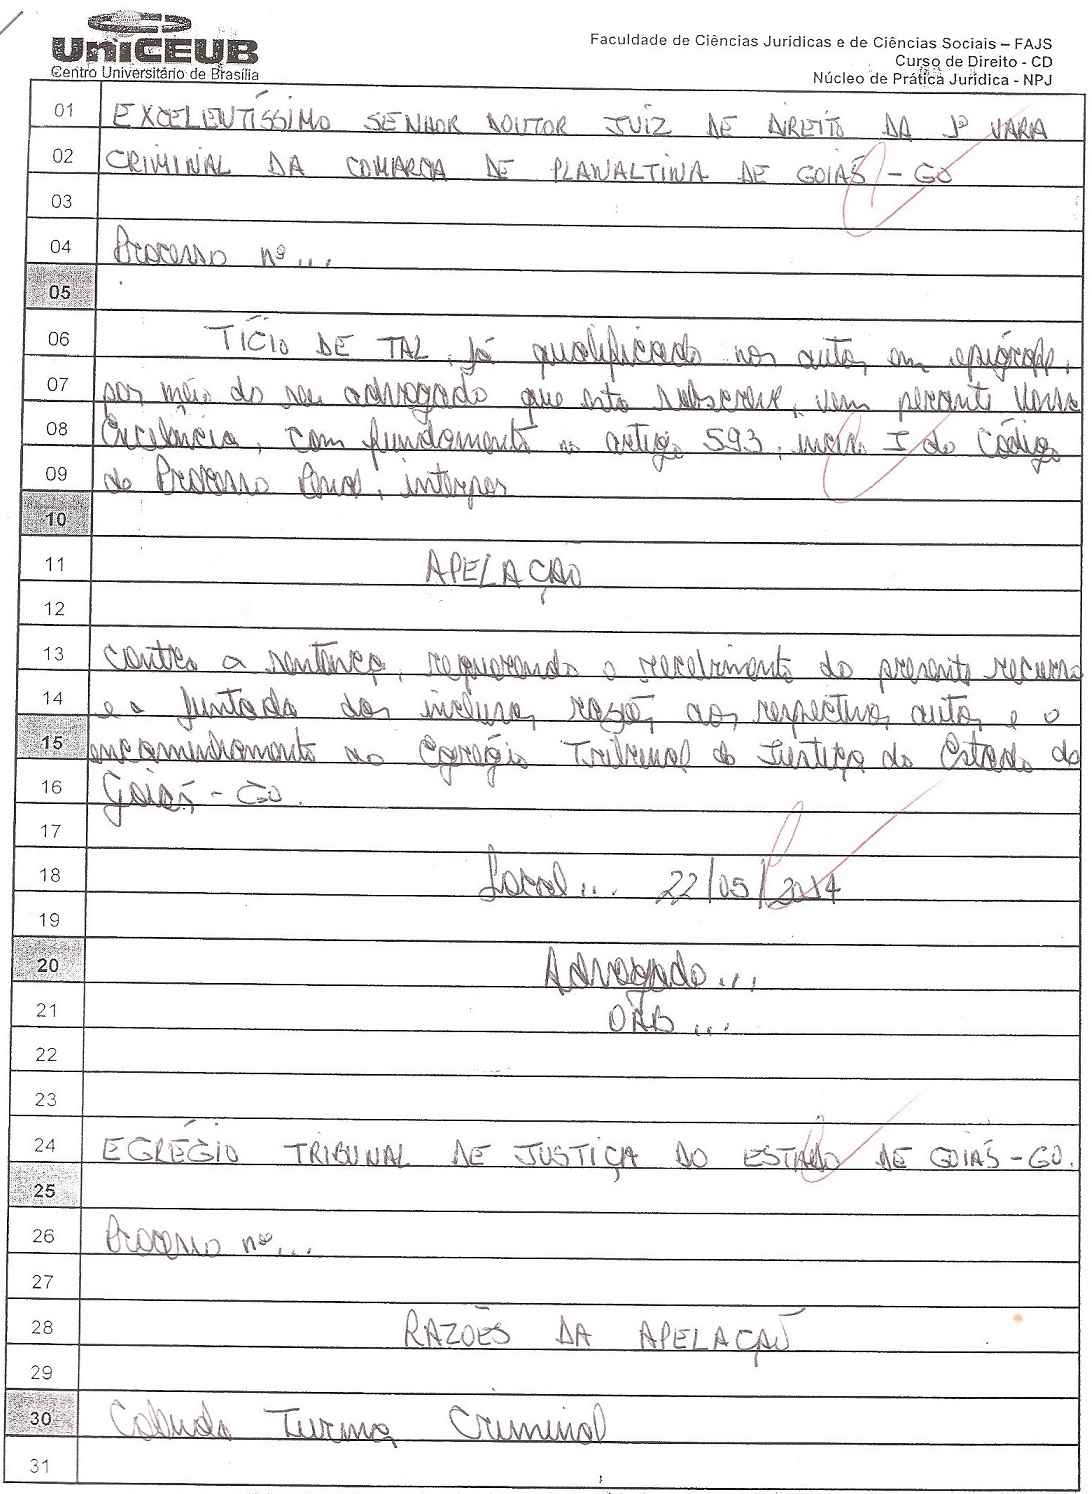 UniCEUB
Centro Universitário de Brasília
Faculdade de Ciências Jurídicas e de Ciências Sociais – FAJS
Curso de Direito - CD
Núcleo de Prática Jurídica - NPJ
01 EXCELENTÍSSIMO SENHOR DOUTOR JUIZ DE DIREITO DA 1ª VARA
02 CRIMINAL DA COMARCA DE PLANALTINA DE GOIÁS - GO
03
04 Processo nº ...
05
06 TÍCIO DE TAL, já qualificado nos autos em epígrafe,
07 por meio do seu advogado que esta subscreve, vem perante Vossa
08 Excelência, com fundamento no artigo 593, inciso I do Código
09 de Processo Penal, interpor
10
11 APELAÇÃO
12
13 contra a sentença, requerendo o recebimento do presente recurso
14 e a juntada das inclusas razões aos respectivos autos e o
15 encaminhamento ao Egrégio Tribunal de Justiça do Estado de
16 Goiás - GO.
17
18 Local ... 22/05/2014
19
20 Advogado ...
21 OAB ...
22
23
24 EGRÉGIO TRIBUNAL DE JUSTIÇA DO ESTADO DE GOIÁS - GO.
25
26 Processo nº ...
27
28 RAZÕES DA APELAÇÃO
29
30 Colenda Turma Criminal
31